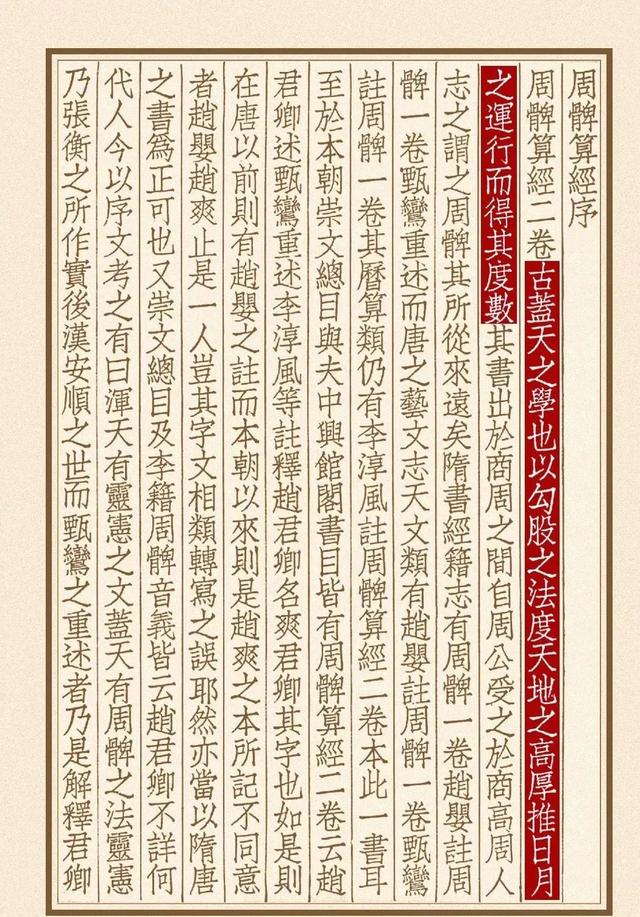 周髀算經序
周髀算經二卷古蓋天之學也以勾股之法度天地之高厚推日月
之運行而得其度數其書出於商周之間自周公受之於商高周人
志之謂之周髀其所從來遠矣隋書經籍志有周髀一卷趙嬰註周
髀一卷甄鸞重述而唐之藝文志天文類有趙嬰註周髀一卷甄鸞
註周髀一卷其曆算類仍有李淳風註周髀算經二卷本此一書耳
至於本朝崇文總目與夫中興館閣書目皆有周髀算經二卷云趙
君卿述甄鸞重述李淳風等註釋趙君卿名爽君卿其字也如是則
在唐以前則有趙嬰之註而本朝以來則是趙爽之本所記不同意
者趙嬰趙爽止是一人豈其字文相類轉寫之誤耶然亦當以隋唐
之書為正可也又崇文總目及李籍周髀音義皆云趙君卿不詳何
代人今以序文考之有曰渾天有靈憲之文蓋天有周髀之法靈憲
乃張衡之所作實後漢安順之世而甄鸞之重述者乃是解釋君卿